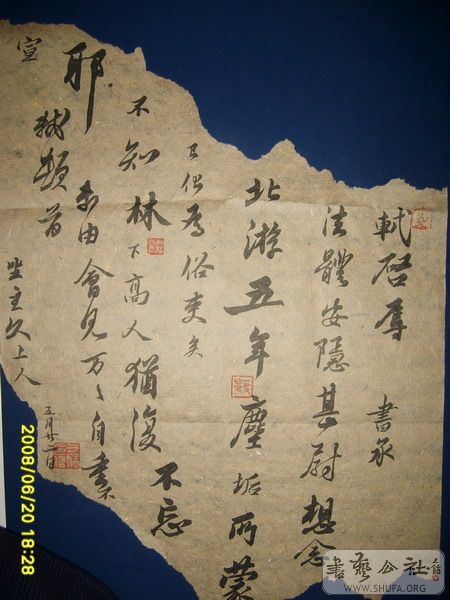 軾啓辱 書承
法體安隱甚尉想念
北游五年塵垢所蒙
已化爲俗吏矣
不知林下高人猶復不忘
耶未由會見万々自重
宣 軾頓首
坐主久上人
五月廿二日
2008/06/20 18:28
書藝公社
WWW.SHUFA.ORG